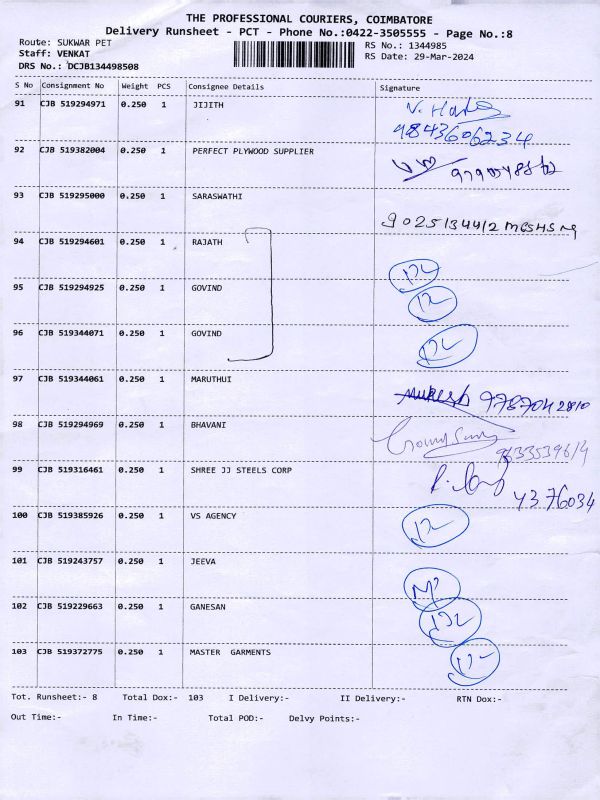 THE PROFESSIONAL COURIERS, COIMBATORE
Delivery Runsheet - PCT - Phone No.:0422-3505555 - Page No.:8
Route: SUKWAR PET RS No.: 1344985
Staff: VENKAT RS Date: 29-Mar-2024
DRS No.: DCJB134498508
S No Consignment No Weight PCS Consignee Details Signature
91 CJB 519294971 0.250 1 JIJITH
9843606234
92 CJB 519382004 0.250 1 PERFECT PLYWOOD SUPPLIER
93 CJB 519295000 0.250 1 SARASWATHI
9025134412
94 CJB 519294601 0.250 1 RAJATH
95 CJB 519294925 0.250 1 GOVIND
96 CJB 519344071 0.250 1 GOVIND
97 CJB 519344061 0.250 1 MARUTHUI
Mukesh 9787042810
98 CJB 519294969 0.250 1 BHAVANI
99 CJB 519316461 0.250 1 SHREE JJ STEELS CORP
4376034
100 CJB 519385926 0.250 1 VS AGENCY
101 CJB 519243757 0.250 1 JEEVA
102 CJB 519229663 0.250 1 GANESAN
103 CJB 519372775 0.250 1 MASTER GARMENTS
Tot. Runsheet:- 8 Total Dox:- 103 I Delivery:- II Delivery:- RTN Dox:-
Out Time:- In Time:- Total POD:- Delvy Points:-